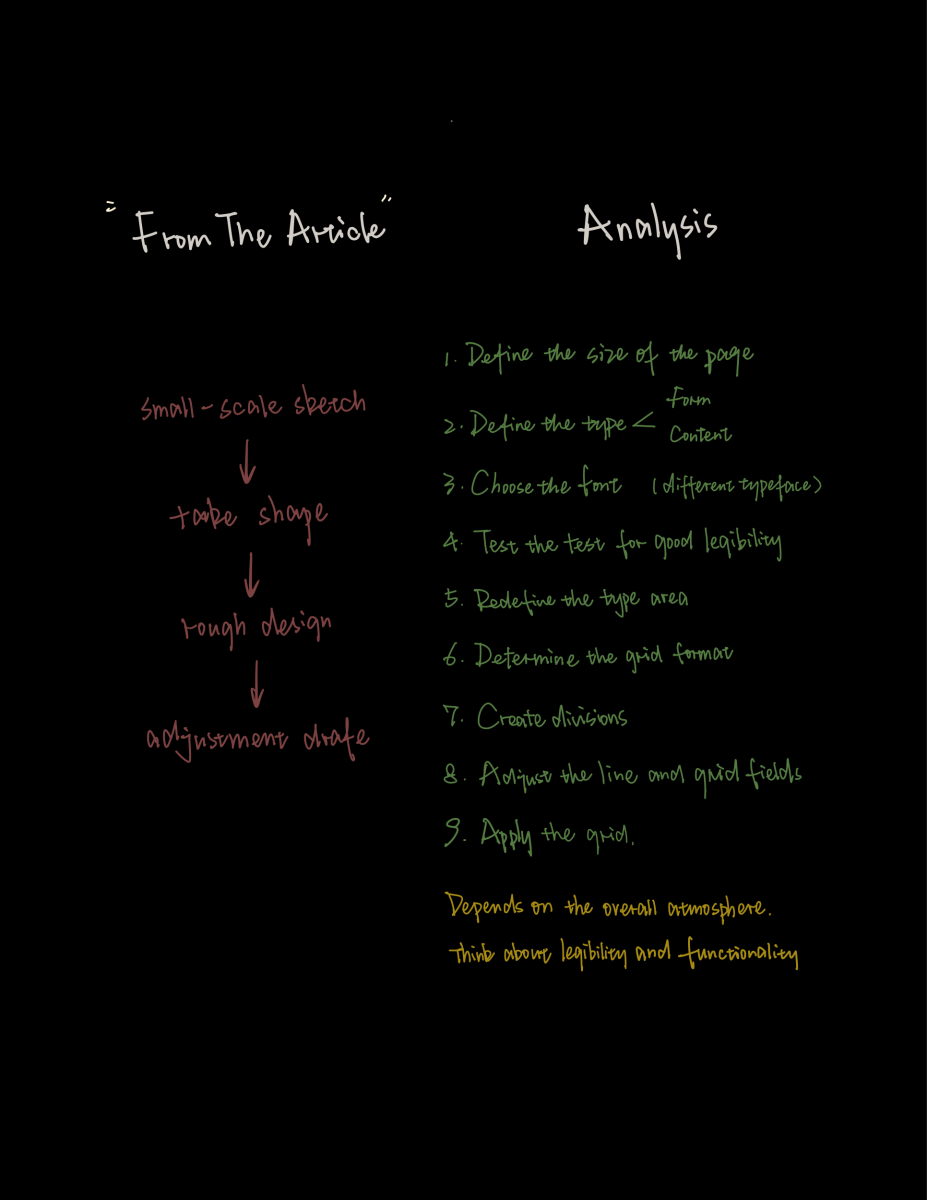 "From The Article"
small-scale sketch
↓
take shape
↓
rough design
↓
adjustment drafe
Analysis
1. Define the size of the page
2. Define the type < Form
Content
3. Choose the font (different typeface)
4. Test the test for good legibility
5. Redefine the type area
6. Determine the grid format
7. Create divisions
8. Adjust the line and grid fields
9. Apply the grid.
Depends on the overall atmosphere.
Think about legibility and functionality